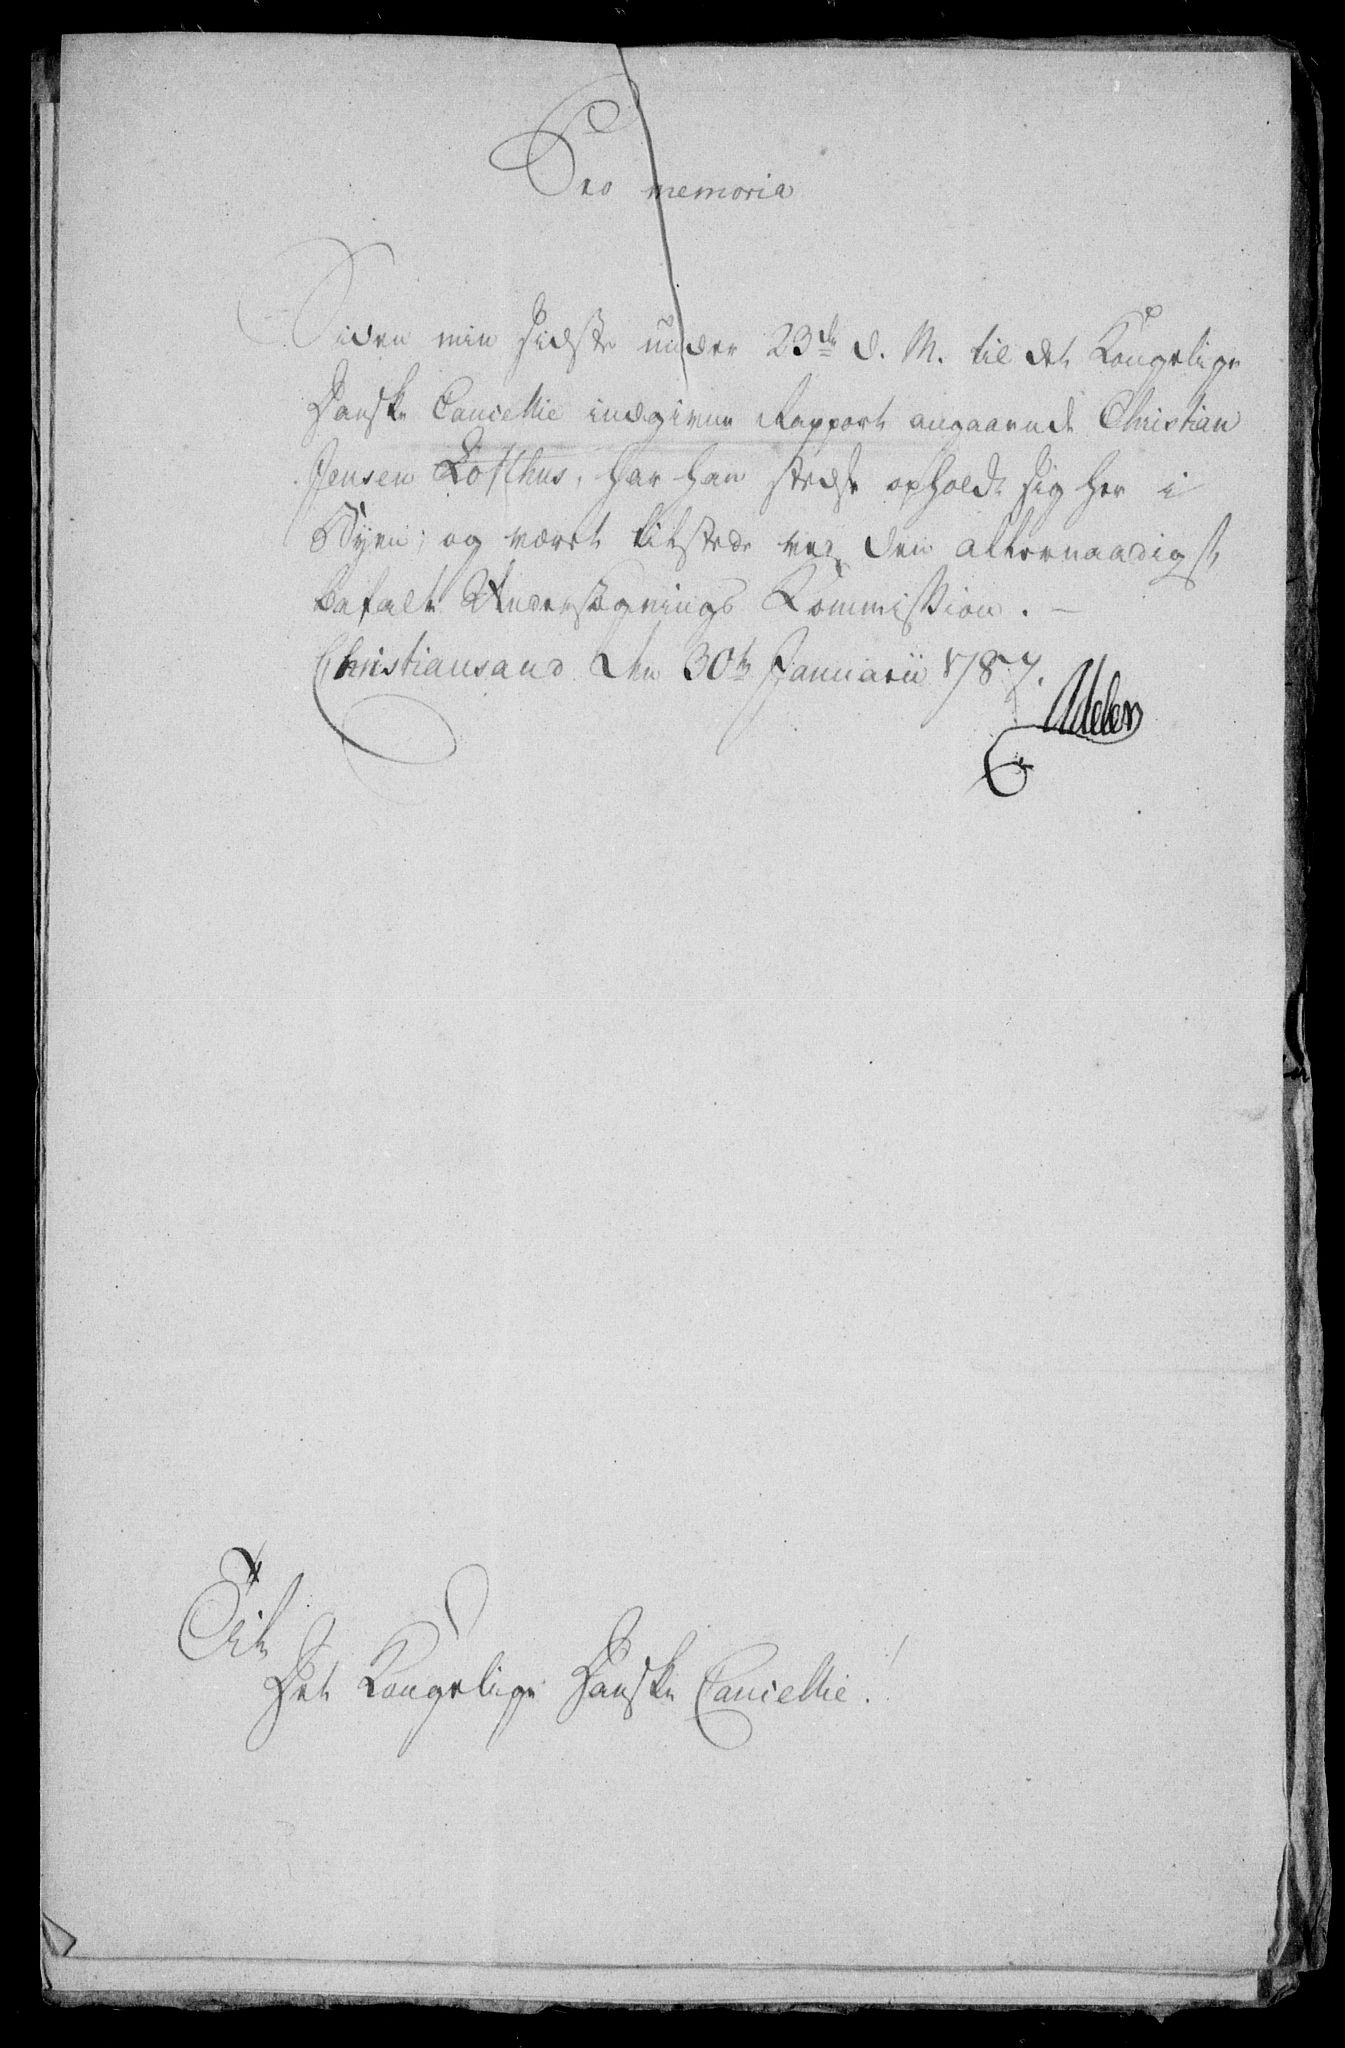 Pro memoria
Siden min sidste under 23de d. M. til det Kongelige
Danske Cancellie indgivne Rapport angaaende Christian
Jensen Lofthus, har han stedse opholdt sig her i
Byen; og været tilstede ved den allernaadigst
befalte Undersøgnings Kommission. —
Christiansand den 30te Januarii 1787.
Adeler
Til
Det Kongelige Danske Cancellie!